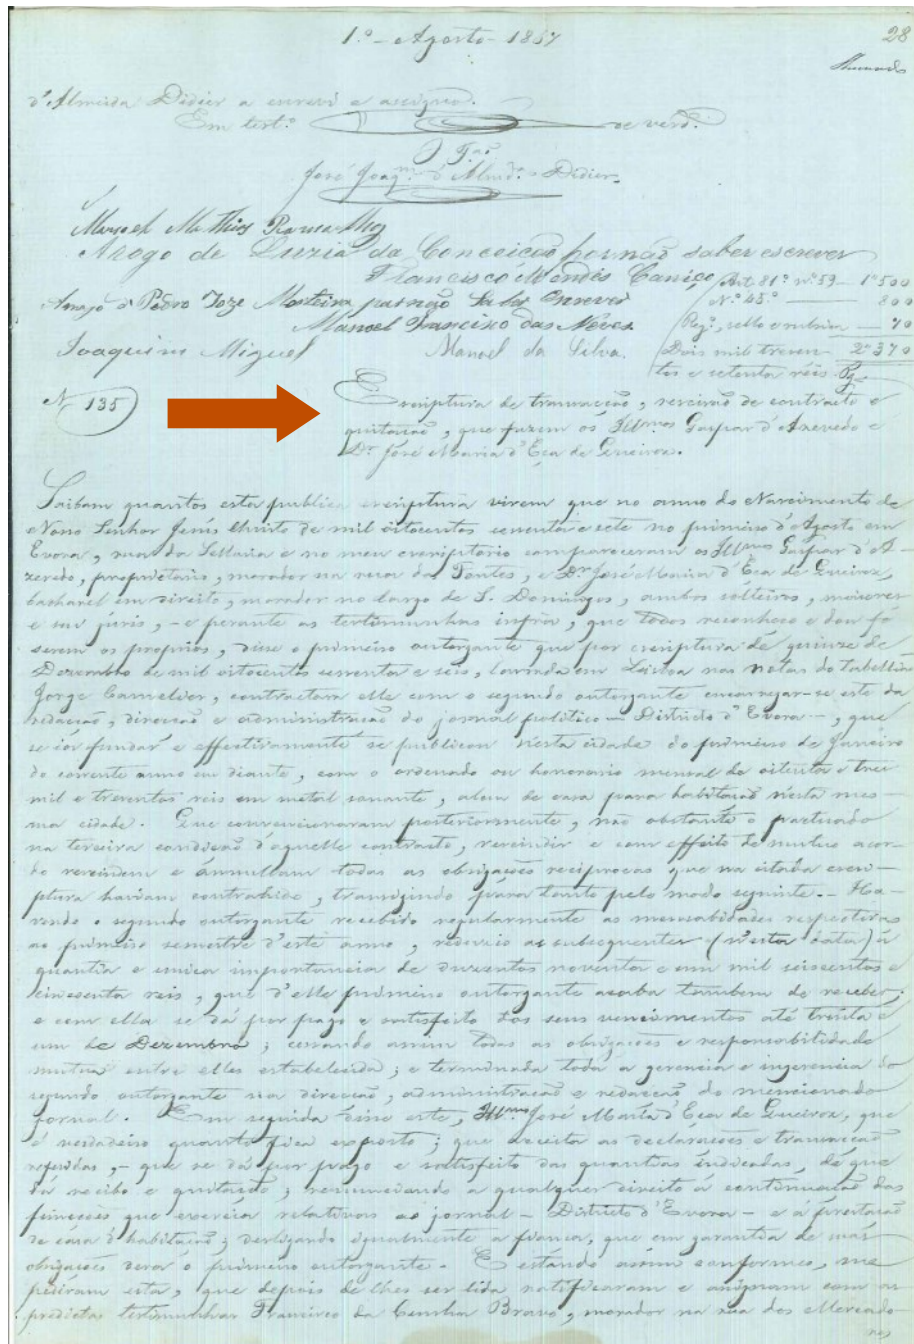 1.º - Agosto - 1867
28
d'Almeida Didier a escrevi e assigno.
Em test.º de verd.e
O T.am
José Joaq.m d'Almd.ª Didier
Manoel Mathias Ramalho
Arogo de Luzia da Conceicão por não saber escrever
Francisco Mendes Caniço
Arogo d Pedro Joze Monteiro por não saber escrever
Manoel Francisco das Neves
Joaquim Miguel
Manoel da Silva.
Art. 81º nº 53 — 1$500
Nº 45º — 800
Reg.º, sello e rubrica — 70
Dois mil trezen- 2$370
tos e setenta réis
N 135
Escriptura de transacção, rescisão de contracto e
quitação, que fazem os Ill.mos Gaspar d'Azevedo e
Dr. José Maria d'Eça de Queiroz.
Saibam quantos esta publica escriptura virem que no anno do Nascimento de
Nosso Senhor Jesus Christo de mil oitocentos sessenta e sete no primeiro d'Agosto em
Evora, rua da Sellaria e no meu escriptorio compareceram os Ill.mos Gaspar d'A-
zevedo, proprietario, morador na rua das Fontes, e Dr. José Maria d'Eça de Queiroz,
bacharel em direito, morador no largo de S. Domingos, ambos solteiros, maiores
e sui juris, - e perante as testimunhas infra, que todos reconheço e dou fé
serem os proprios, disse o primeiro outorgante que por escriptura de quinze de
Dezembro de mil oitocentos sessenta e seis, lavrada em Lisboa nas notas do Tabellião
Jorge Camelier, contractara elle com o segundo outorgante encarregar-se este da
redacção, direcção e administração do jornal politico — Districto d'Evora —, que
se ia fundar e effectivamente se publicou n'esta cidade do primeiro de Janeiro
do corrente anno em diante, com o ordenado ou honorario mensal de oitenta e tres
mil e trezentos reis em metal sonante, alem de casa para habitação n'esta mes-
ma cidade. Que convencionaram posteriormente, não obstante o pactuado
na terceira condição d'aquelle contracto, rescindir e com effeito de mutuo acor-
do rescindem e annullam todas as obrigações reciprocas que na citada escri-
ptura haviam contrahido, transigindo para tanto pelo modo seguinte. - Ha-
vendo o segundo outorgante recebido regularmente as mensalidades respectivas
ao primeiro semestre d'este anno, reduzio as subsequentes (n'esta data) á
quantia e unica importancia de duzentos noventa e um mil seiscentos e
cincoenta reis, que d'elle primeiro outorgante acaba tambem de receber;
e com ella se dá por pago e satisfeito dos seus vencimentos até trinta e
um de Dezembro; cessando assim todas as obrigações e responsabilidade
mutua entre elles estabelecida; e terminada toda a gerencia e ingerencia do
segundo outorgante na direcção, administração e redacção do mencionado
jornal. Em seguida disse este, Ill.mo José Maria d'Eça de Queiroz, que
é verdadeiro quanto fica exposto; que acceita as declarações e transacção
referidas, - que se dá por pago e satisfeito das quantias indicadas, de que
dá recibo e quitação; renunciando a qualquer direito á continuação das
funcções que exercia relativas ao jornal - Districto d'Evora - e á prestação
de casa d'habitação; desligando igualmente a fiança, que em garantia de suas
obrigações dera o primeiro outorgante. E estando assim conformes, me
pediram esta, que depois de lhes ser lida ratificaram e assignam com as
predictas testimunhas Francisco da Cunha Bravo, morador na rua dos Mercado-
res